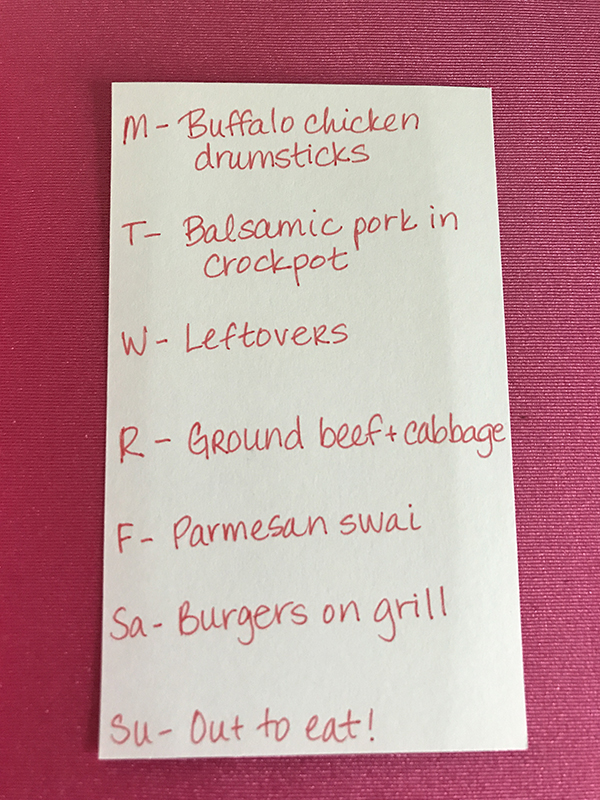 M- Buffalo chicken
drumsticks
T- Balsamic pork in
crockpot
W- Leftovers
R- Ground beef + cabbage
F- Parmesan swai
Sa- Burgers on grill
Su- Out to eat!